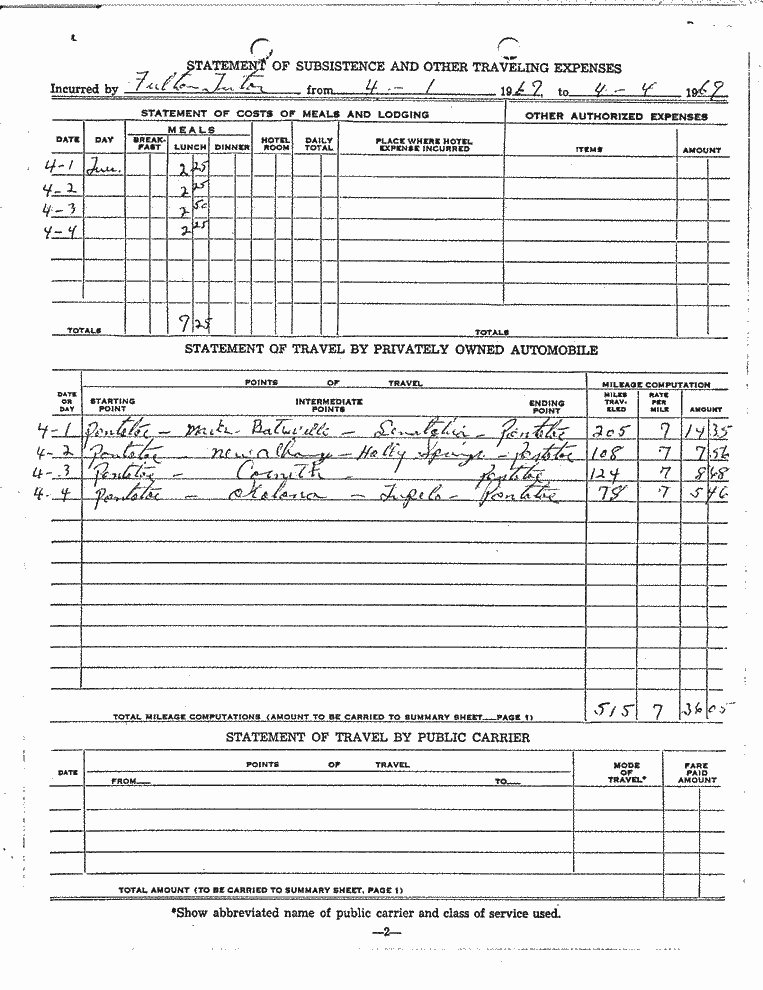 STATEMENT OF SUBSISTENCE AND OTHER TRAVELING EXPENSES
Incurred by Fulton Tutor from 4 - 1 1969, to 4 - 4 1969
STATEMENT OF COSTS OF MEALS AND LODGING OTHER AUTHORIZED EXPENSES
DATE DAY MEALS BREAK-FAST LUNCH DINNER HOTEL ROOM DAILY TOTAL PLACE WHERE HOTEL EXPENSE INCURRED ITEMS AMOUNT
4-1 Tues. 2 25
4-2 2 25
4-3 2 50
4-4 2 25
TOTALS 9 25 TOTALS
STATEMENT OF TRAVEL BY PRIVATELY OWNED AUTOMOBILE
POINTS OF TRAVEL MILEAGE COMPUTATION
DATE OR DAY STARTING POINT INTERMEDIATE POINTS ENDING POINT MILES TRAV-ELED RATE PER MILE AMOUNT
4-1 Pontotoc - Batesville - Senatobia - Pontotoc 205 7 14 35
4-2 Pontotoc - New Albany - Holly Springs - Pontotoc 108 7 7 56
4-3 Pontotoc - Corinth - Pontotoc 124 7 8 68
4-4 Pontotoc - Okolona - Tupelo - Pontotoc 78 7 5 46
TOTAL MILEAGE COMPUTATIONS (AMOUNT TO BE CARRIED TO SUMMARY SHEET PAGE 1) 515 7 36 05
STATEMENT OF TRAVEL BY PUBLIC CARRIER
DATE POINTS OF TRAVEL MODE OF TRAVEL* FARE PAID AMOUNT
FROM TO
TOTAL AMOUNT (TO BE CARRIED TO SUMMARY SHEET, PAGE 1)
*Show abbreviated name of public carrier and class of service used.
—2—